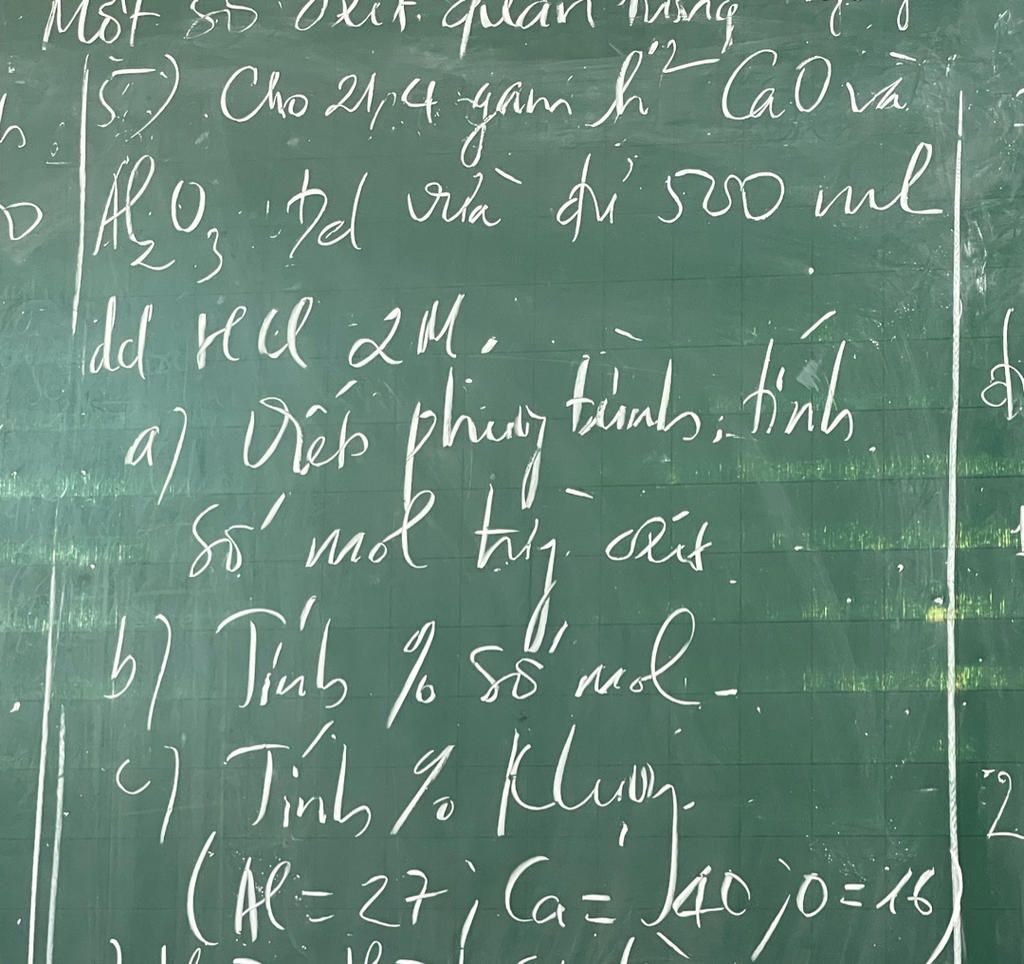 Một số oxit quan trọng
5) Cho 21,4 gam h² CaO và
Al₂O₃ td vừa đủ 500 ml
dd HCl 2M.
a) Viết phương trình, tính
số mol từng oxit.
b) Tính % số mol.
c) Tính % Klượng.
(Al = 27; Ca = 40; O = 16)
2